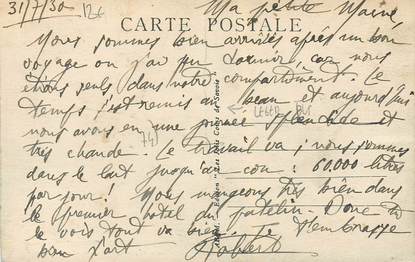 31/7/30
Ma petite Mainé
CARTE POSTALE
Nous sommes bien arrivés après un bon
voyage on j'ai pu dormir, car nous
étions seuls dans notre compartiment. Le
temps s'est remis au beau et aujourd'hui
LEGER PLI
nous avons eu une journée splendide et
très chaude. Le travail va ; nous sommes
dans le lait jusqu'au cou : 60.000 litres
par jour ! Nous mangeons très bien dans
le premier hotel du patelin. Donc tu
le vois tout va bien. Je t'embrasse
bien fort
Robert